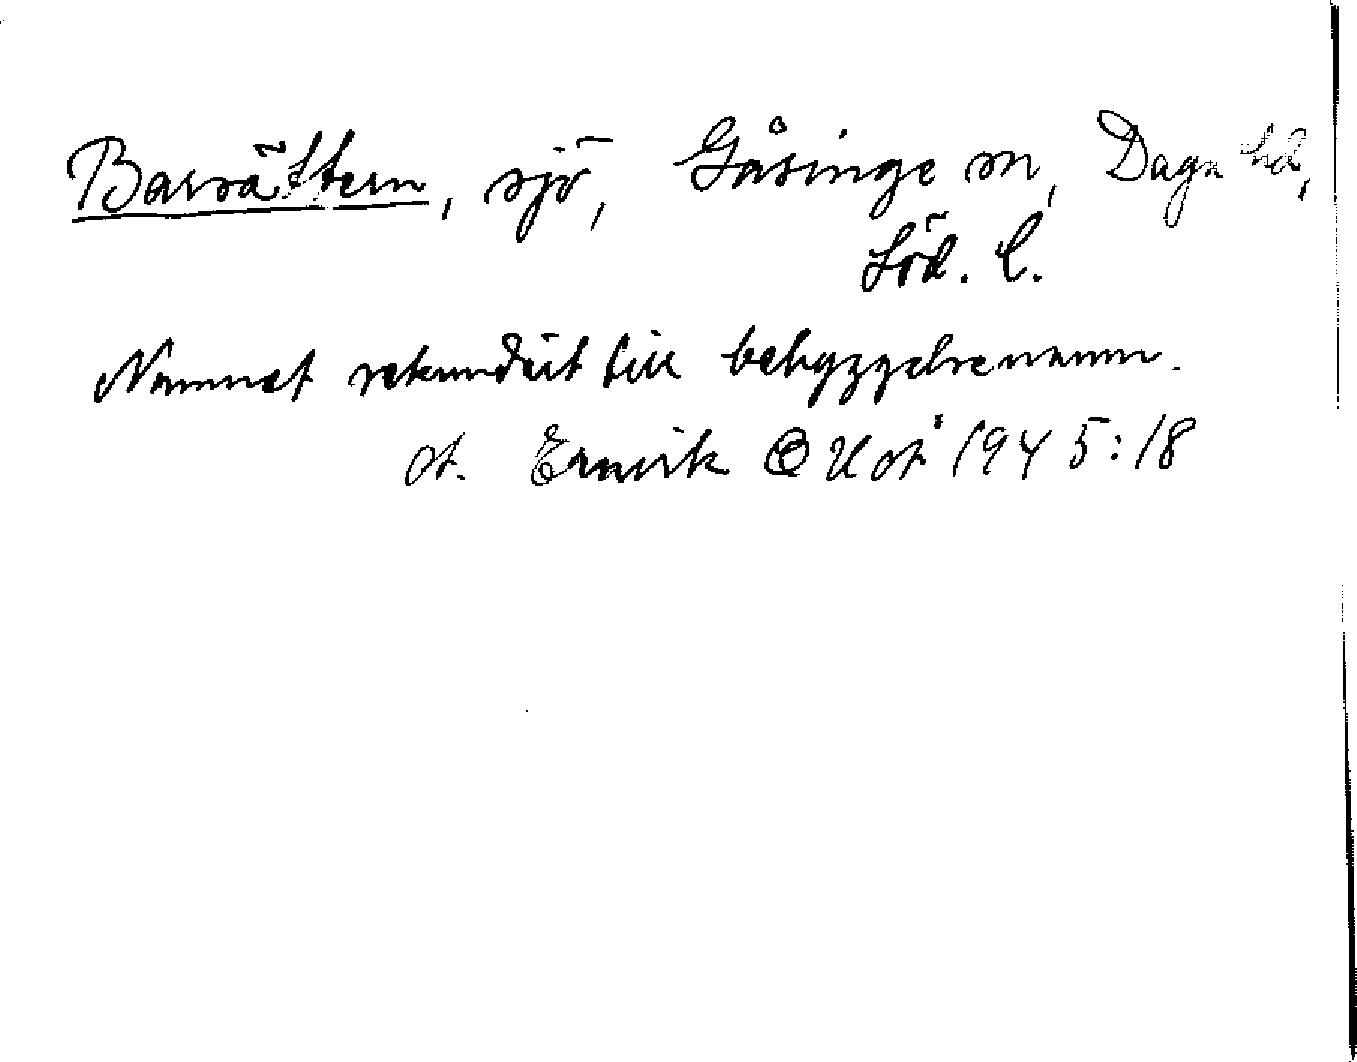 Barsättern, sjö, Gåsinge sn, Daga hd,
Söd. l.
Namnet sekundärt till bebyggelsenamn.
st. Ernvik OUÅ 1945:18